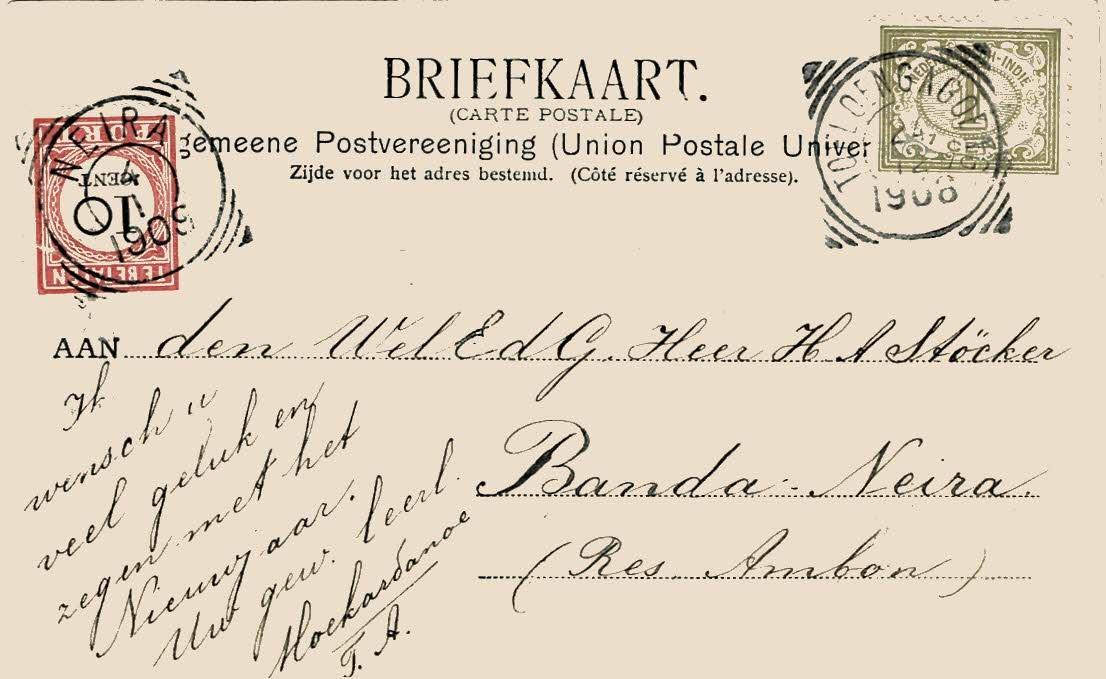 BRIEFKAART.
(CARTE POSTALE)
gemeene Postvereeniging (Union Postale Univer
Zijde voor het adres bestemd. (Côté réservé à l'adresse).
NEIRA
1909
PORT
CENT
10
TE BETALEN
TOELOENGAGOENG
1908
AAN den WelEdG. Heer H A Stöcker
Banda-Neira.
(Res. Ambon)
Ik
wensch u
veel geluk en
zegen met het
Nieuwjaar.
Uw gew. leerl.
Moekardanoe
F. A.